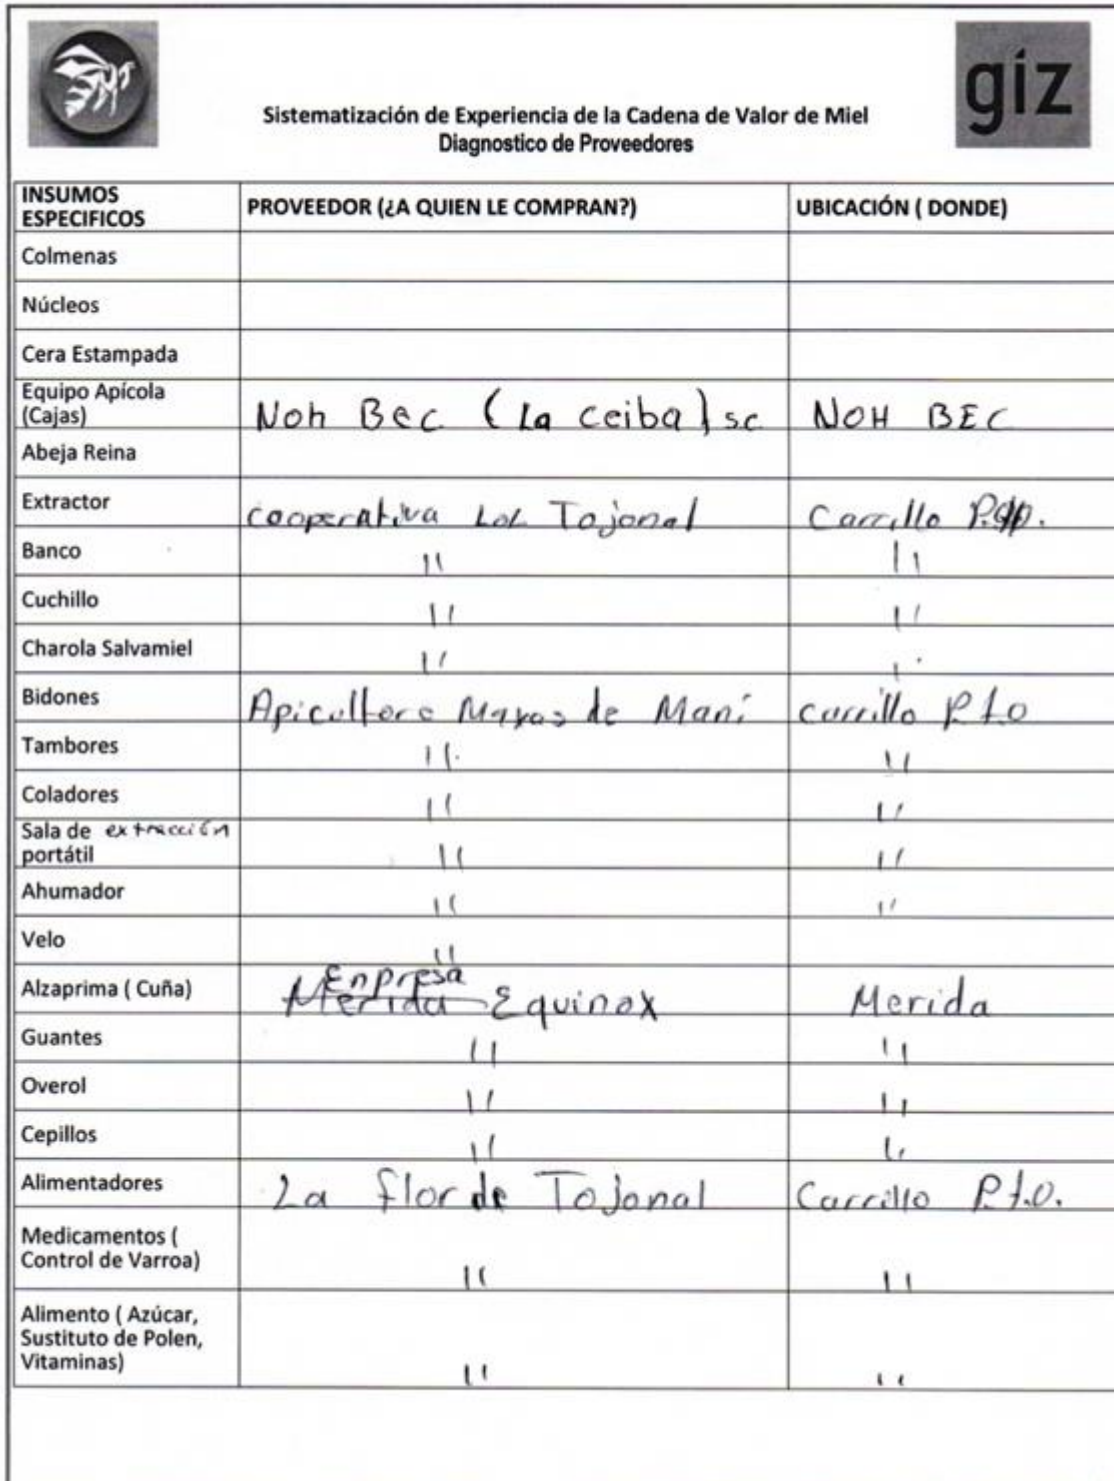 giz
Sistematización de Experiencia de la Cadena de Valor de Miel
Diagnostico de Proveedores
INSUMOS ESPECIFICOS PROVEEDOR (¿A QUIEN LE COMPRAN?) UBICACIÓN ( DONDE)
Colmenas
Núcleos
Cera Estampada
Equipo Apícola (Cajas) Noh Bec (La ceiba) sc NOH BEC
Abeja Reina
Extractor cooperativa LoL Tajonal Carrillo
Banco " "
Cuchillo " "
Charola Salvamiel "
Bidones Apicultore Mayas de Maní carrillo Pto
Tambores " "
Coladores " "
Sala de extracción portátil " "
Ahumador " "
Velo "
Alzaprima ( Cuña) Enpresa Merida Equinox Merida
Guantes " "
Overol " "
Cepillos " "
Alimentadores La flor de Tajonal Carrillo P.t.o.
Medicamentos ( Control de Varroa) " "
Alimento ( Azúcar, Sustituto de Polen, Vitaminas) " "